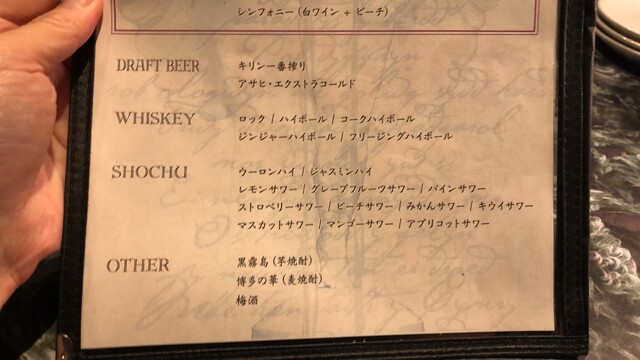 シンフォニー (白ワイン + ピーチ)
DRAFT BEER
キリン一番搾り
アサヒ・エクストラコールド
WHISKEY
ロック / ハイボール / コークハイボール
ジンジャーハイボール / フリージングハイボール
SHOCHU
ウーロンハイ / ジャスミンハイ
レモンサワー / グレープフルーツサワー / パインサワー
ストロベリーサワー / ピーチサワー / みかんサワー / キウイサワー
マスカットサワー / マンゴーサワー / アプリコットサワー
OTHER
黒霧島 (芋焼酎)
博多の華 (麦焼酎)
梅酒